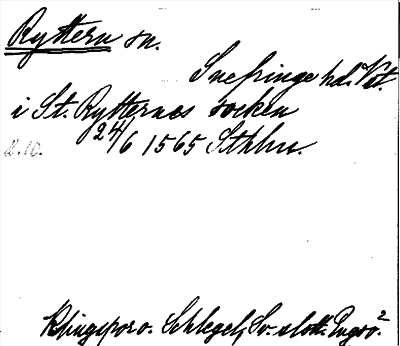 Ryttern sn.
Snefringe hd. Vst.
i St. Rytternes socken
24/6 1565 Sthlm.
Klingspor o. Schlegel, Sv. slott. Ingso.²